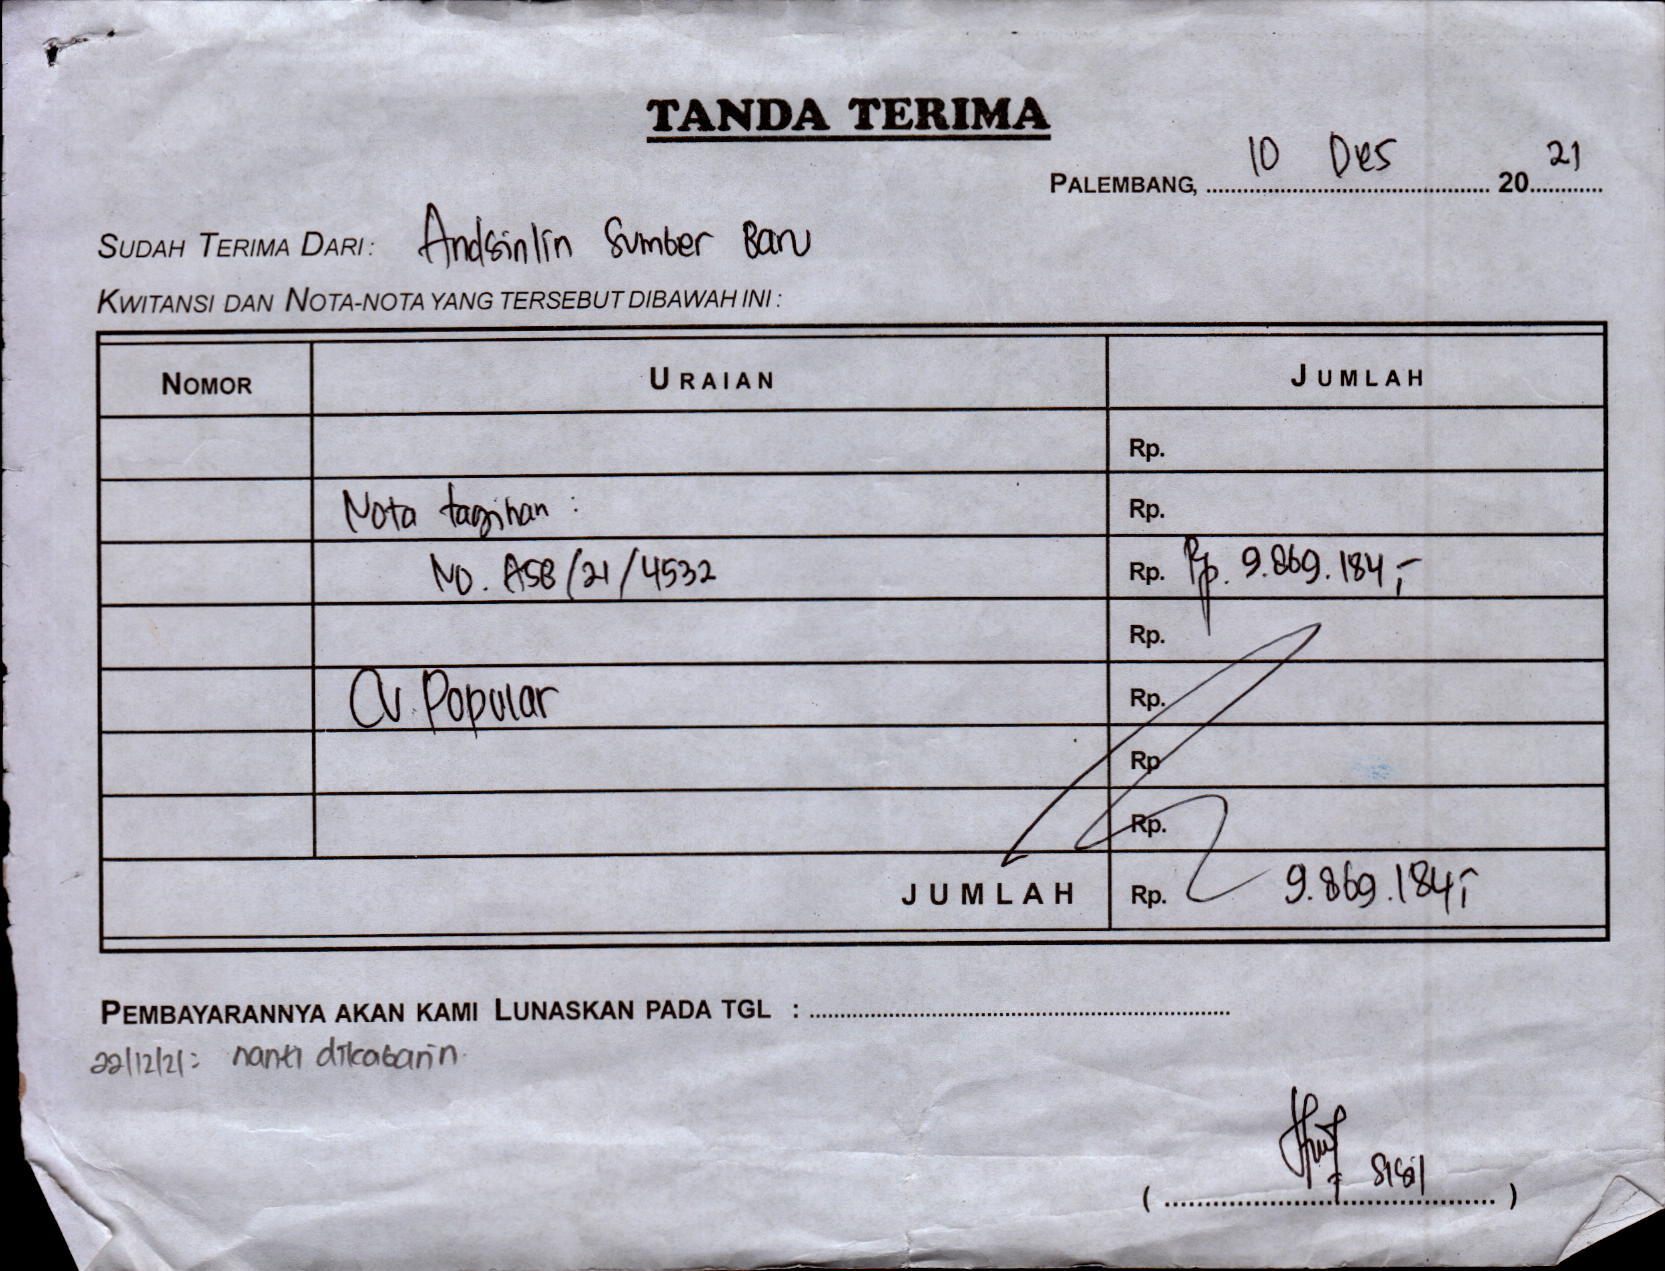 TANDA TERIMA
PALEMBANG, 10 Des 2021
SUDAH TERIMA DARI: Andsinlin Sumber Baru
KWITANSI DAN NOTA-NOTA YANG TERSEBUT DIBAWAH INI :
NOMOR URAIAN JUMLAH
Rp.
Nota tagihan : Rp.
No. ASB/21/4532 Rp. Rp. 9.869.184,-
Rp.
CV. Popular Rp.
Rp
Rp.
JUMLAH Rp. 9.869.184,-
PEMBAYARANNYA AKAN KAMI LUNASKAN PADA TGL :
22/12/21: nanti dikabarin
Sisil
( )